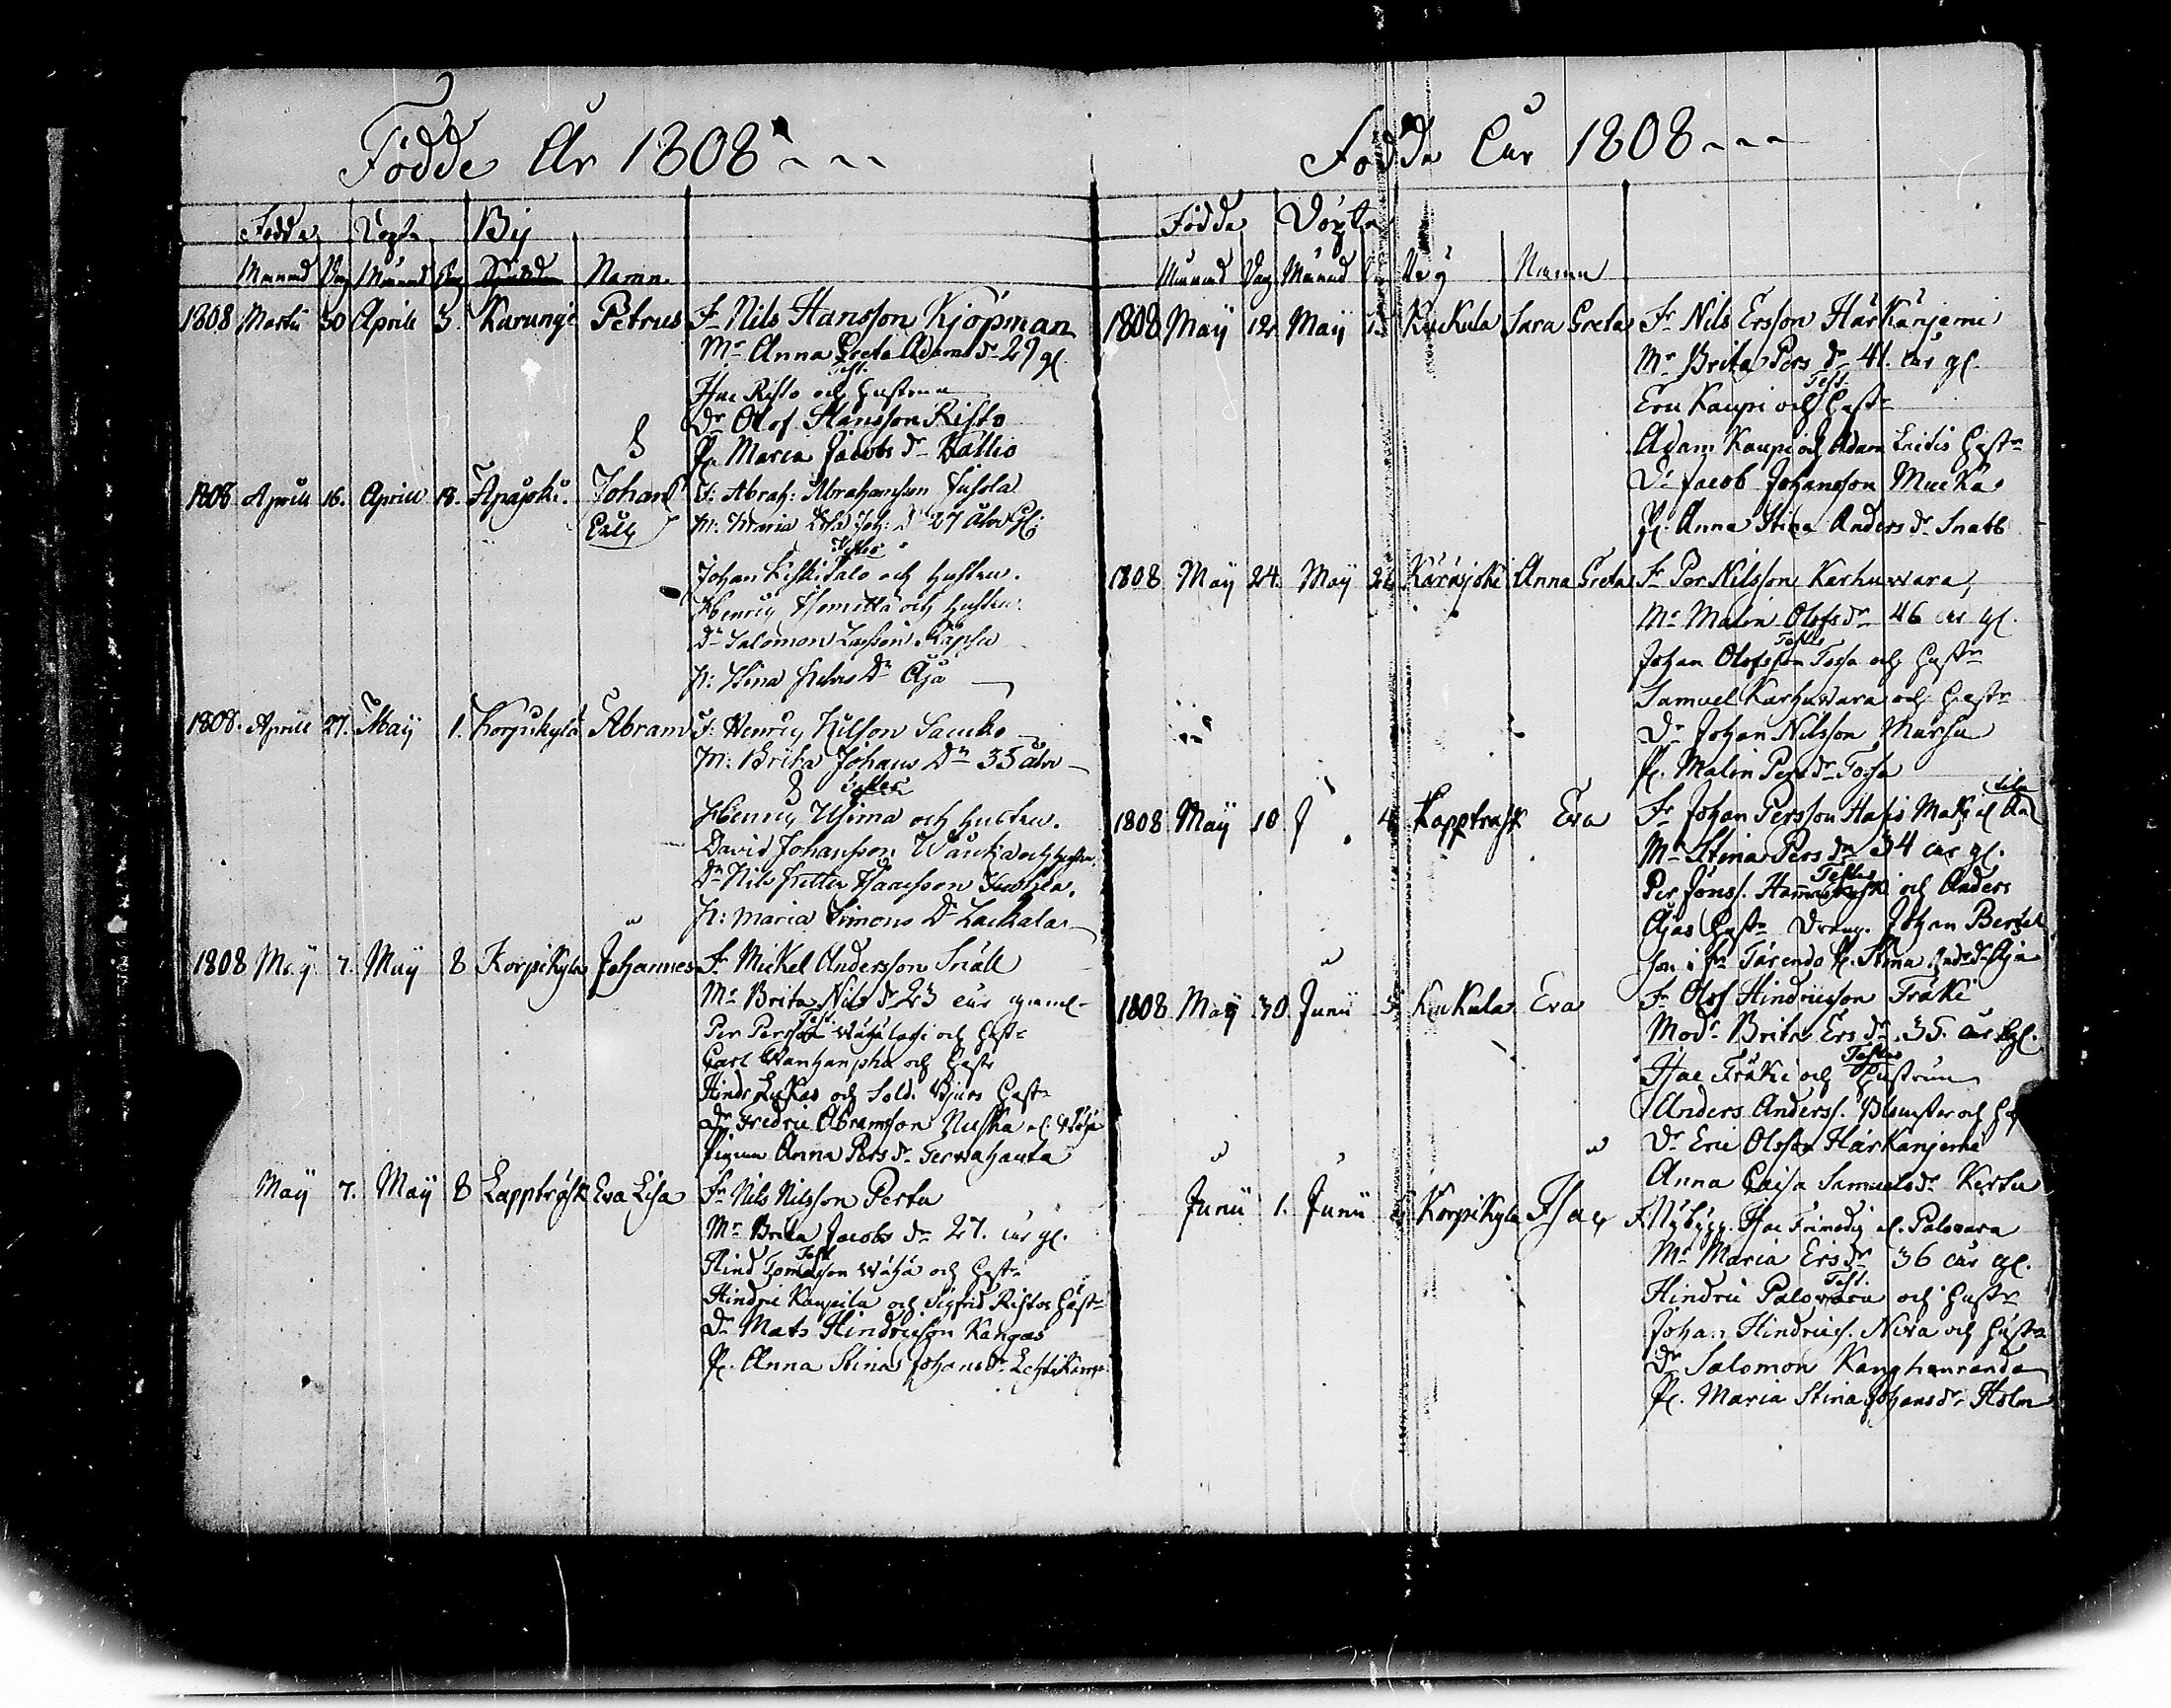 Födde År 1808
Födde Döpte By
Månad Dag Månad Dag Namn.
1808 Martii 30 Aprill 3. Karungi Petrus Fr Nils Hansson Kjöpman
Mr Anna Greta Adams dr 29 gl.
Test.
Isac Risto och Hustrun
Dr Olof Hansson Risto
P. Maria Jacobs dr Kallio
1808 Aprill 16. Aprill 18. Apajoki. Johan F: Abrah: Abrahamsson
Calle M: Maria Lisa Joh: Dr 27 åhr gl.
Testes
Johan Kiskitalo och hustru.
Henric och hustru.
Dr Salomon Larsson
P: Stina Dr Aja
1808. Aprill 27. Maij 1. Korpikylä Abram F: Henric Nilsson
M: Brita Johans Dr 35 åhr
Testes
Henric Usima och hustru.
David Johansson och hustru.
Dr Nils Isacsson
P: Maria Simons Dr
1808 Maij 7. Maij 8 Korpikyla Johannes Fr Mickel Andersson Snäll
Mr Brita Nils dr 23 år gammal
Test.
Per Persson och Hustr
Carl Wanhanpha och Hustr
Hindr Lukas och Sold. Hustr
Dr Fredric Abramsson
Pigan Anna Pers dr Terwahauta
Maij 7. Maij 8 Lappträsk Eva Lisa Fr Nils Nilsson Pertu
Mr Brita Jacobs dr 27. år gl.
Test
Hind Tomasson och Hustr
Hindric Kaupila och Sigfrid Ristos Hustr
Dr Mats Hindricsson Kangas
P. Anna Stina Johans dr
Födde År 1808
Födde Döpte
Månad Dag Månad Namn
1808 Maij 12. Maij Kuckula Sara Greta Fr Nils Ersson Härkänjemi
Mr Brita Pers dr 41. år gl.
Test.
Eric Kaupi och Hustr
Adam Kaupi och Adam Hustr
Dr Jacob Johansson Mucka
P. Anna Stina Anders dr Snabb
1808 Maij 24. Maij Karasjoki Anna Greta Fr Per Nilsson Karhuwara,
Mr Malin Olofs dr 46 år gl.
Testes
Johan Olofsson och Hustr
Samuel Karhuwara och Hustr
Dr Johan Nilsson Marsu
P. Malin Pers dr
1808 Maij 10 J 4 Lapptrask Eva Fr Johan Persson
Mr Stina Pers dr 34 år gl.
Testes
Per Jönss. och Anders
Ajas Hustr Dräng. Johan Bertel
son i Tärendö P. Stina Andr dr Aja
1808 Maij 30 Junii Kuckula Eva Fr Olof Hindricsson Fräki
Modr Brita Ers dr 35. år gl.
Testes
Isac Fräki och Hustrun
Anders Anderss. och
Dr Eric Olsson Härkänjemi
Anna Caisa Samuels dr Kertu
Junii 1. Junii Korpikyla Isac F. Nybygg. Isac Palovara
Mr Maria Ers dr 36 år gl.
Test.
Hindric Palovara och Hustr
Johan Hindrics. Niva och Hustr
Dr Salomon
P. Maria Stina Johans dr Holm